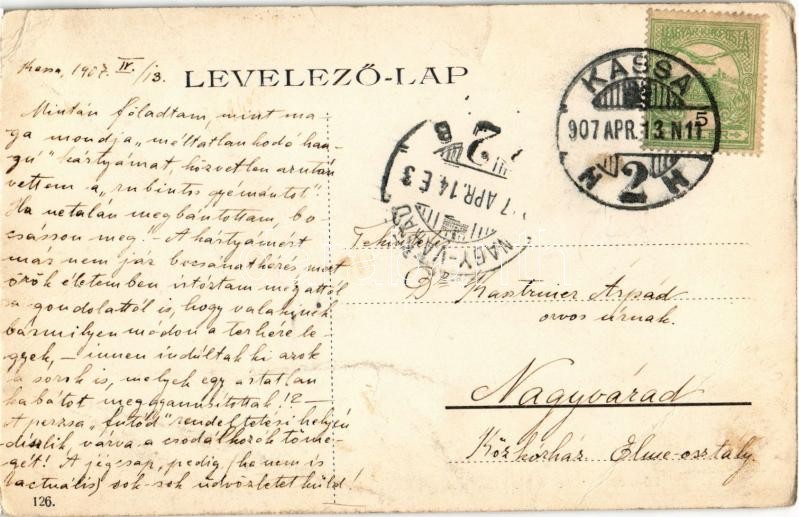 Kassa, 1907. IV./13.
LEVELEZŐ-LAP
Mintán föladtam, mint ma-
ga mondja „méltatlankodó han-
gú" kártyámat, közvetlen azután
vettem a „rubintos gyémántot".
Ha netalán megbántottam, bo-
csásson meg! – A kártyámért
már nem jár bocsánatkérés mert
örök életemben irtóztam még attól
a gondolattól is, hogy valakinek
bármilyen módon a terhére le-
gyek, – innen indúltak ki azok
a sorok is, melyek egy ártatlan
kabátot meggyanusítottak!? –
A perzsa „futód" rendeltetési helyén
díszlik, várva a csodálkozók töme-
gét! A jégcsap, pedig (ha nem is
actuális) sok-sok üdvözletet küld!
126.
KASSA
907 APR. 13. N 11
N 2 N
MAGYAR KIR. POSTA
5
2 B
7 APR. 14. E 3
NAGY-VÁRAD
Tekintetes
Dr Kastriner Árpád
orvos úrnak.
Nagyvárad
Közkórház Elme-osztály